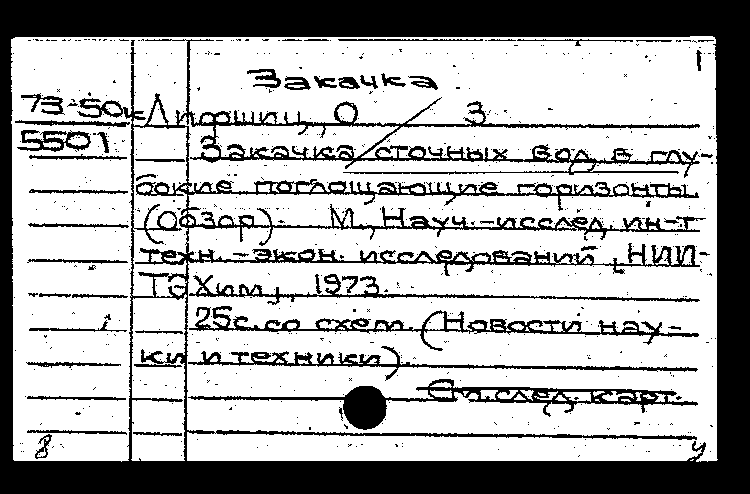 1
Закачка
73-50к Лифшиц, О З
5501 Закачка сточных вод в глу-
бокие поглощающие горизонты
(Обзор). М., Науч.-исслед. ин-т
техн.-экон. исследований [НИИ-
ТЭХим], 1973.
25с. со схем. (Новости нау-
ки и техники).
См. след. карт.
8 у